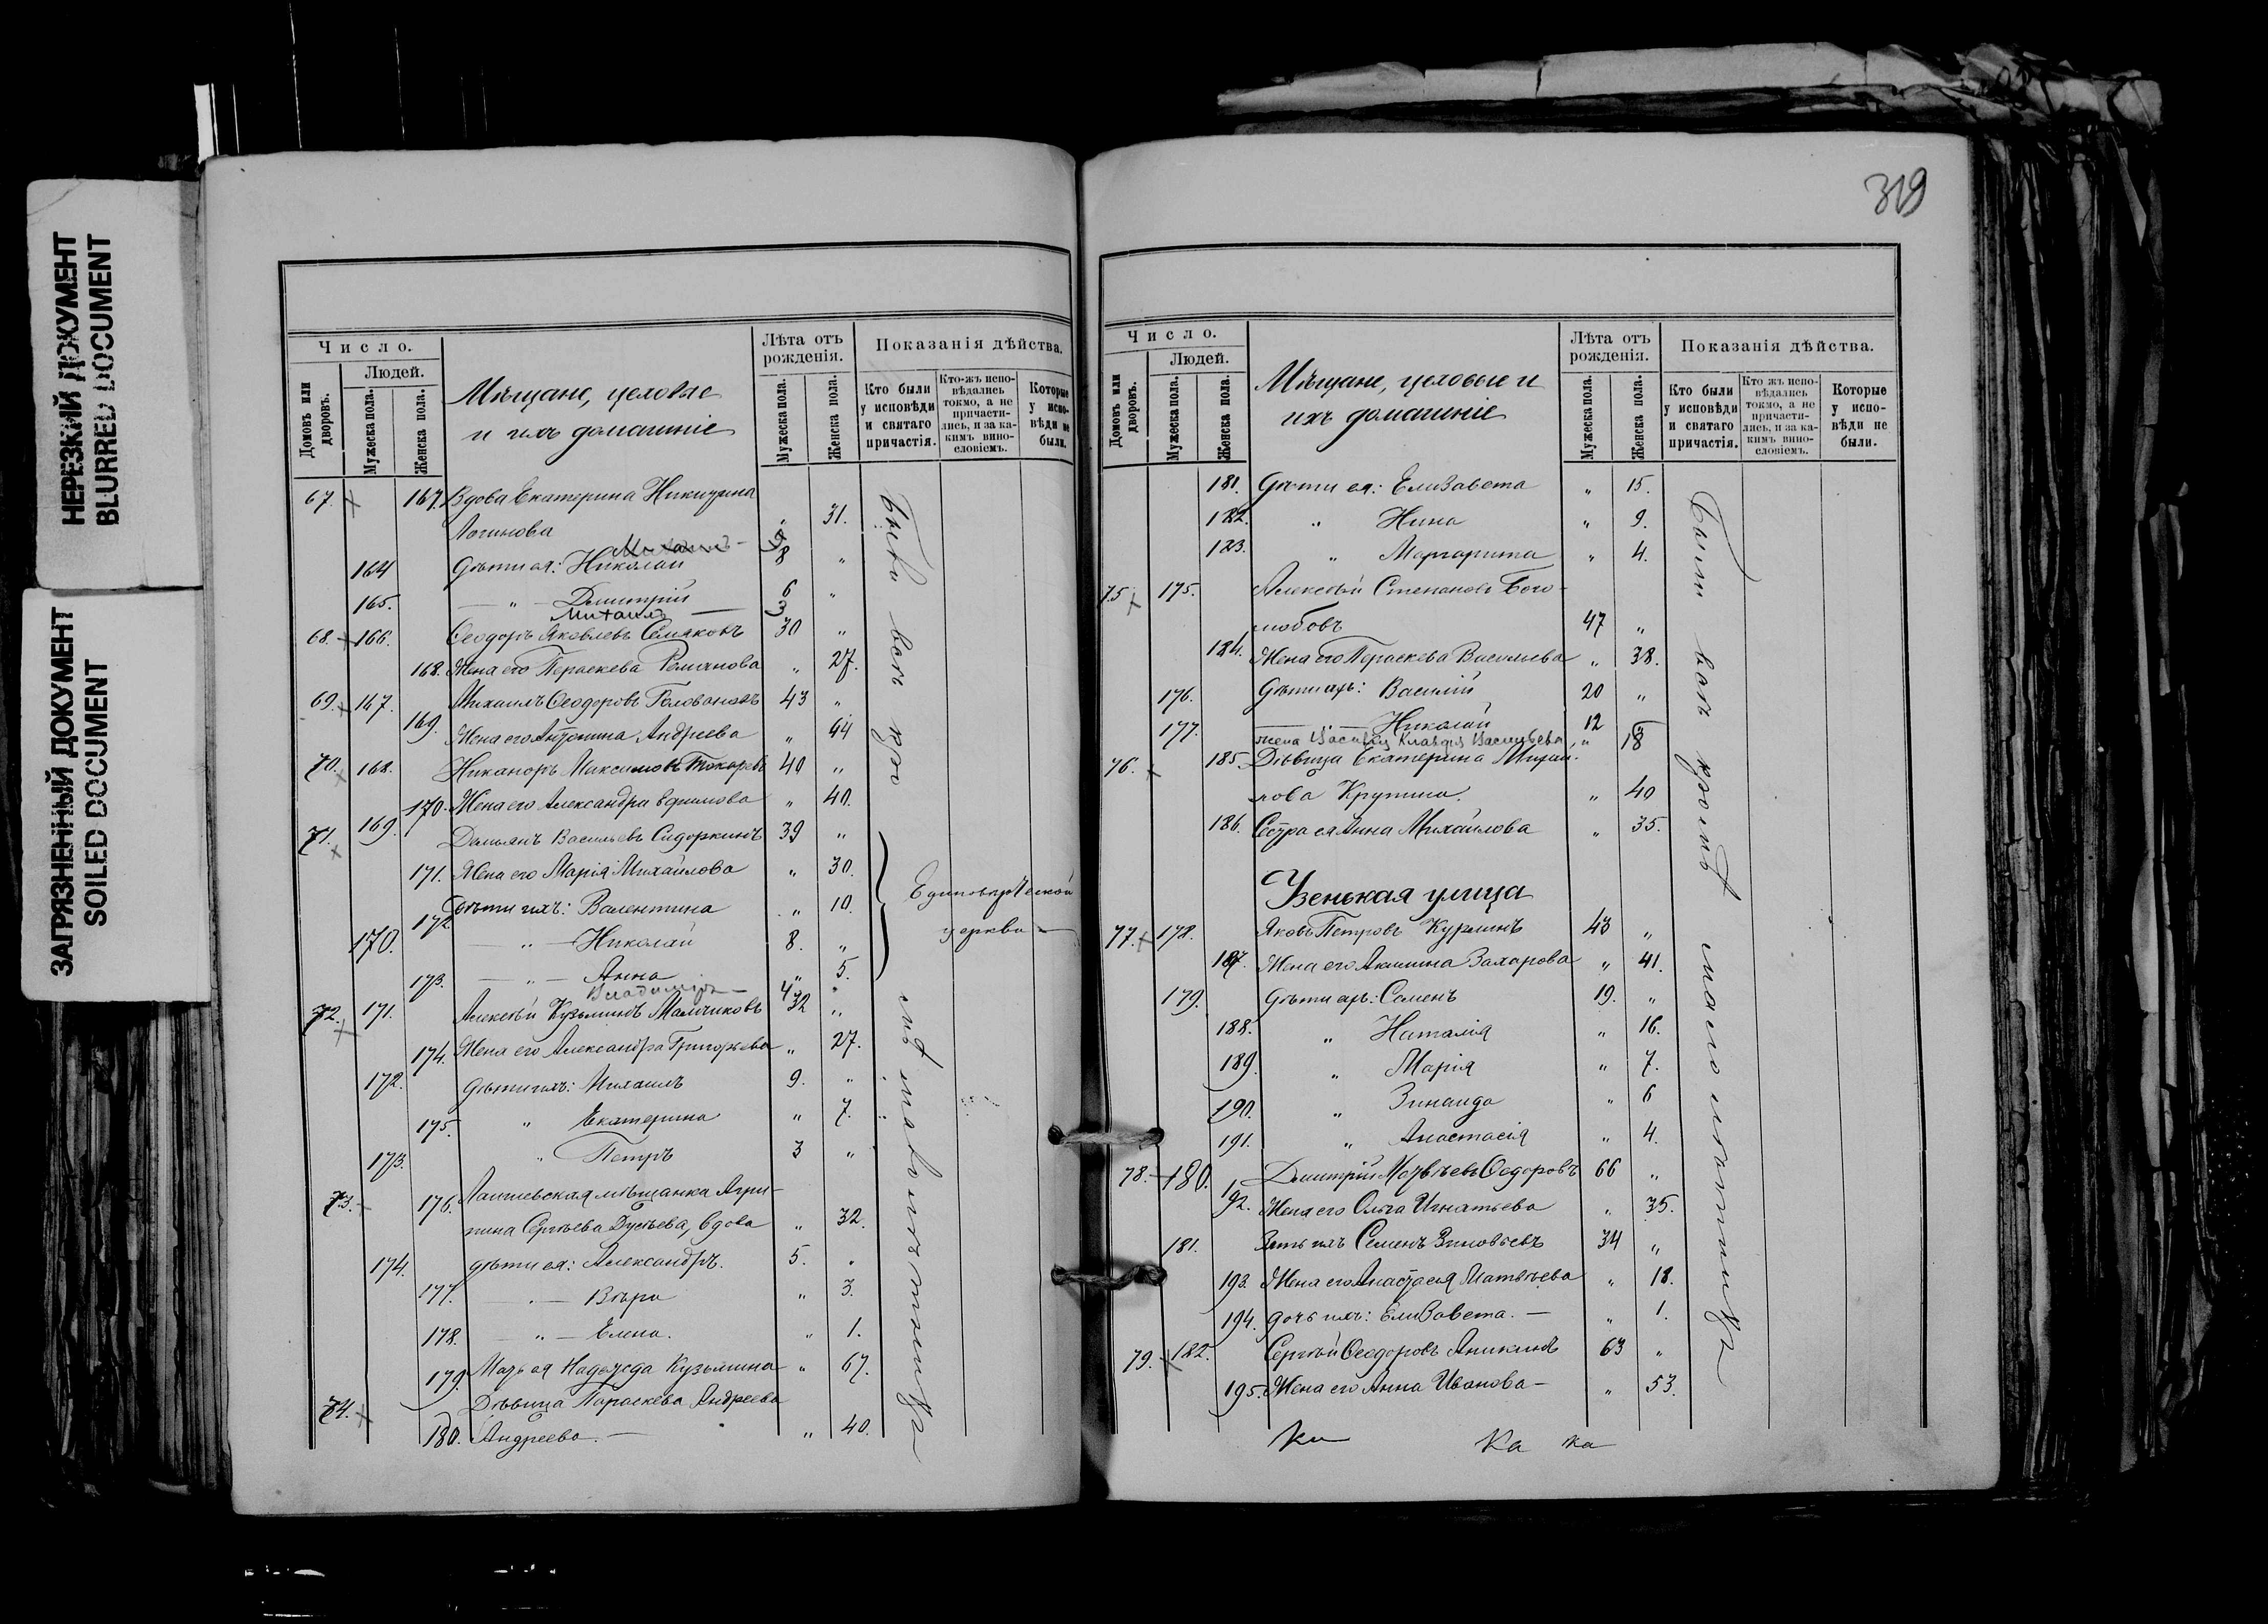 НЕРЕЗКИЙ ДОКУМЕНТ
BLURRED DOCUMENT
ЗАГРЯЗНЕННЫЙ ДОКУМЕНТ
SOILED DOCUMENT
Число.
Домовъ или дворовъ.
Людей.
Мужеска пола.
Женска пола.
Мѣщане, цеховые
и ихъ домашніе
Лѣта отъ рожденія.
Мужеска пола.
Женска пола.
Показанія дѣйства.
Кто были у исповѣди и святаго причастія.
Кто-жъ исповѣдались токмо, а не причастились, и за какимъ винословіемъ.
Которые у исповѣди не были.
67. 167. Вдова Екатерина Никитина
Логинова " 31.
164 дѣти ея: Николай 8 "
165. — " — Дмитрій 6 "
Михаилъ — 3
68. 166. Ѳеодоръ Яковлевъ Семяковъ 30 "
168. Жена его Параскева Романова " 27.
69. 167. Михаилъ Ѳеодоровъ Головановъ 43 "
169. Жена его Антонина Андреева " 44
70. 168. Никаноръ Максимовъ Токаревъ 40 "
170. Жена его Александра Ефимова " 40.
71. 169. Демьянъ Васильевъ Сидоркинъ 39 "
171. Жена его Марія Михайлова " 30.
172. Дѣти ихъ: Валентина " 10.
170. — " — Николай 8. "
173. — " — Анна " 5.
Владиміръ — 4 "
Единовѣрческой
церкви —
72. 171. Алексѣй Кузьминъ Мальчиковъ 32 "
174. Жена его Александра Григорьева " 27.
172. дѣти ихъ: Михаилъ 9. "
175. " Екатерина " 7.
173. " Петръ 3 "
73. 176. Лаишевская мѣщанка Агри-
пина Сергѣева Дусьева, вдова " 32.
174. дѣти ея: Александръ. 5. "
177. — " — Вѣра " 3.
178. — " — Елена. " 1.
179. Мать ея Надежда Кузьмина " 67.
74. Дѣвица Параскева Андреева
180. Андреева. — " 40.
319
Число.
Домовъ или дворовъ.
Людей.
Мужеска пола.
Женска пола.
Мѣщане, цеховые и
ихъ домашніе
Лѣта отъ рожденія.
Мужеска пола.
Женска пола.
Показанія дѣйства.
Кто были у исповѣди и святаго причастія.
Кто жъ исповѣдались токмо, а не причастились, и за какимъ винословіемъ.
Которые у исповѣди не были.
181. Дѣти ея: Елизавета " 15.
182. " Нина " 9.
183. " Маргарита " 4.
75 175. Алексѣй Степановъ Бого-
любовъ 47 "
184. Жена его Параскева Васильева " 38.
176. Дѣти ихъ: Василій 20 "
177. — " — Николай 12
жена Василія Клавдія Васильева " 18
76. 185. Дѣвица Екатерина Михай-
лова Крупина. " 40
186. Сестра ея Анна Михайлова " 35.
Узенькая улица
77. 178. Яковъ Петровъ Курлинъ 43 "
187. Жена его Акилина Захарова " 41.
179. дѣти ихъ: Семенъ 19. "
188. " Наталія " 16.
189. " Марія " 7.
190. " Зинаида " 6
191. " Анастасія " 4.
78. 180. Дмитрій Матвѣевъ Ѳедоровъ 66 "
192. Жена его Ольга Игнатьева " 35.
181. Зять ихъ Семенъ Зиновьевъ 34 "
193. Жена его Анастасія Матвѣева " 18.
194. дочь ихъ: Елизавета. — " 1.
79. 182. Сергѣй Ѳеодоровъ Аникинъ 63 "
195. Жена его Анна Иванова — " 53.
Ка ка